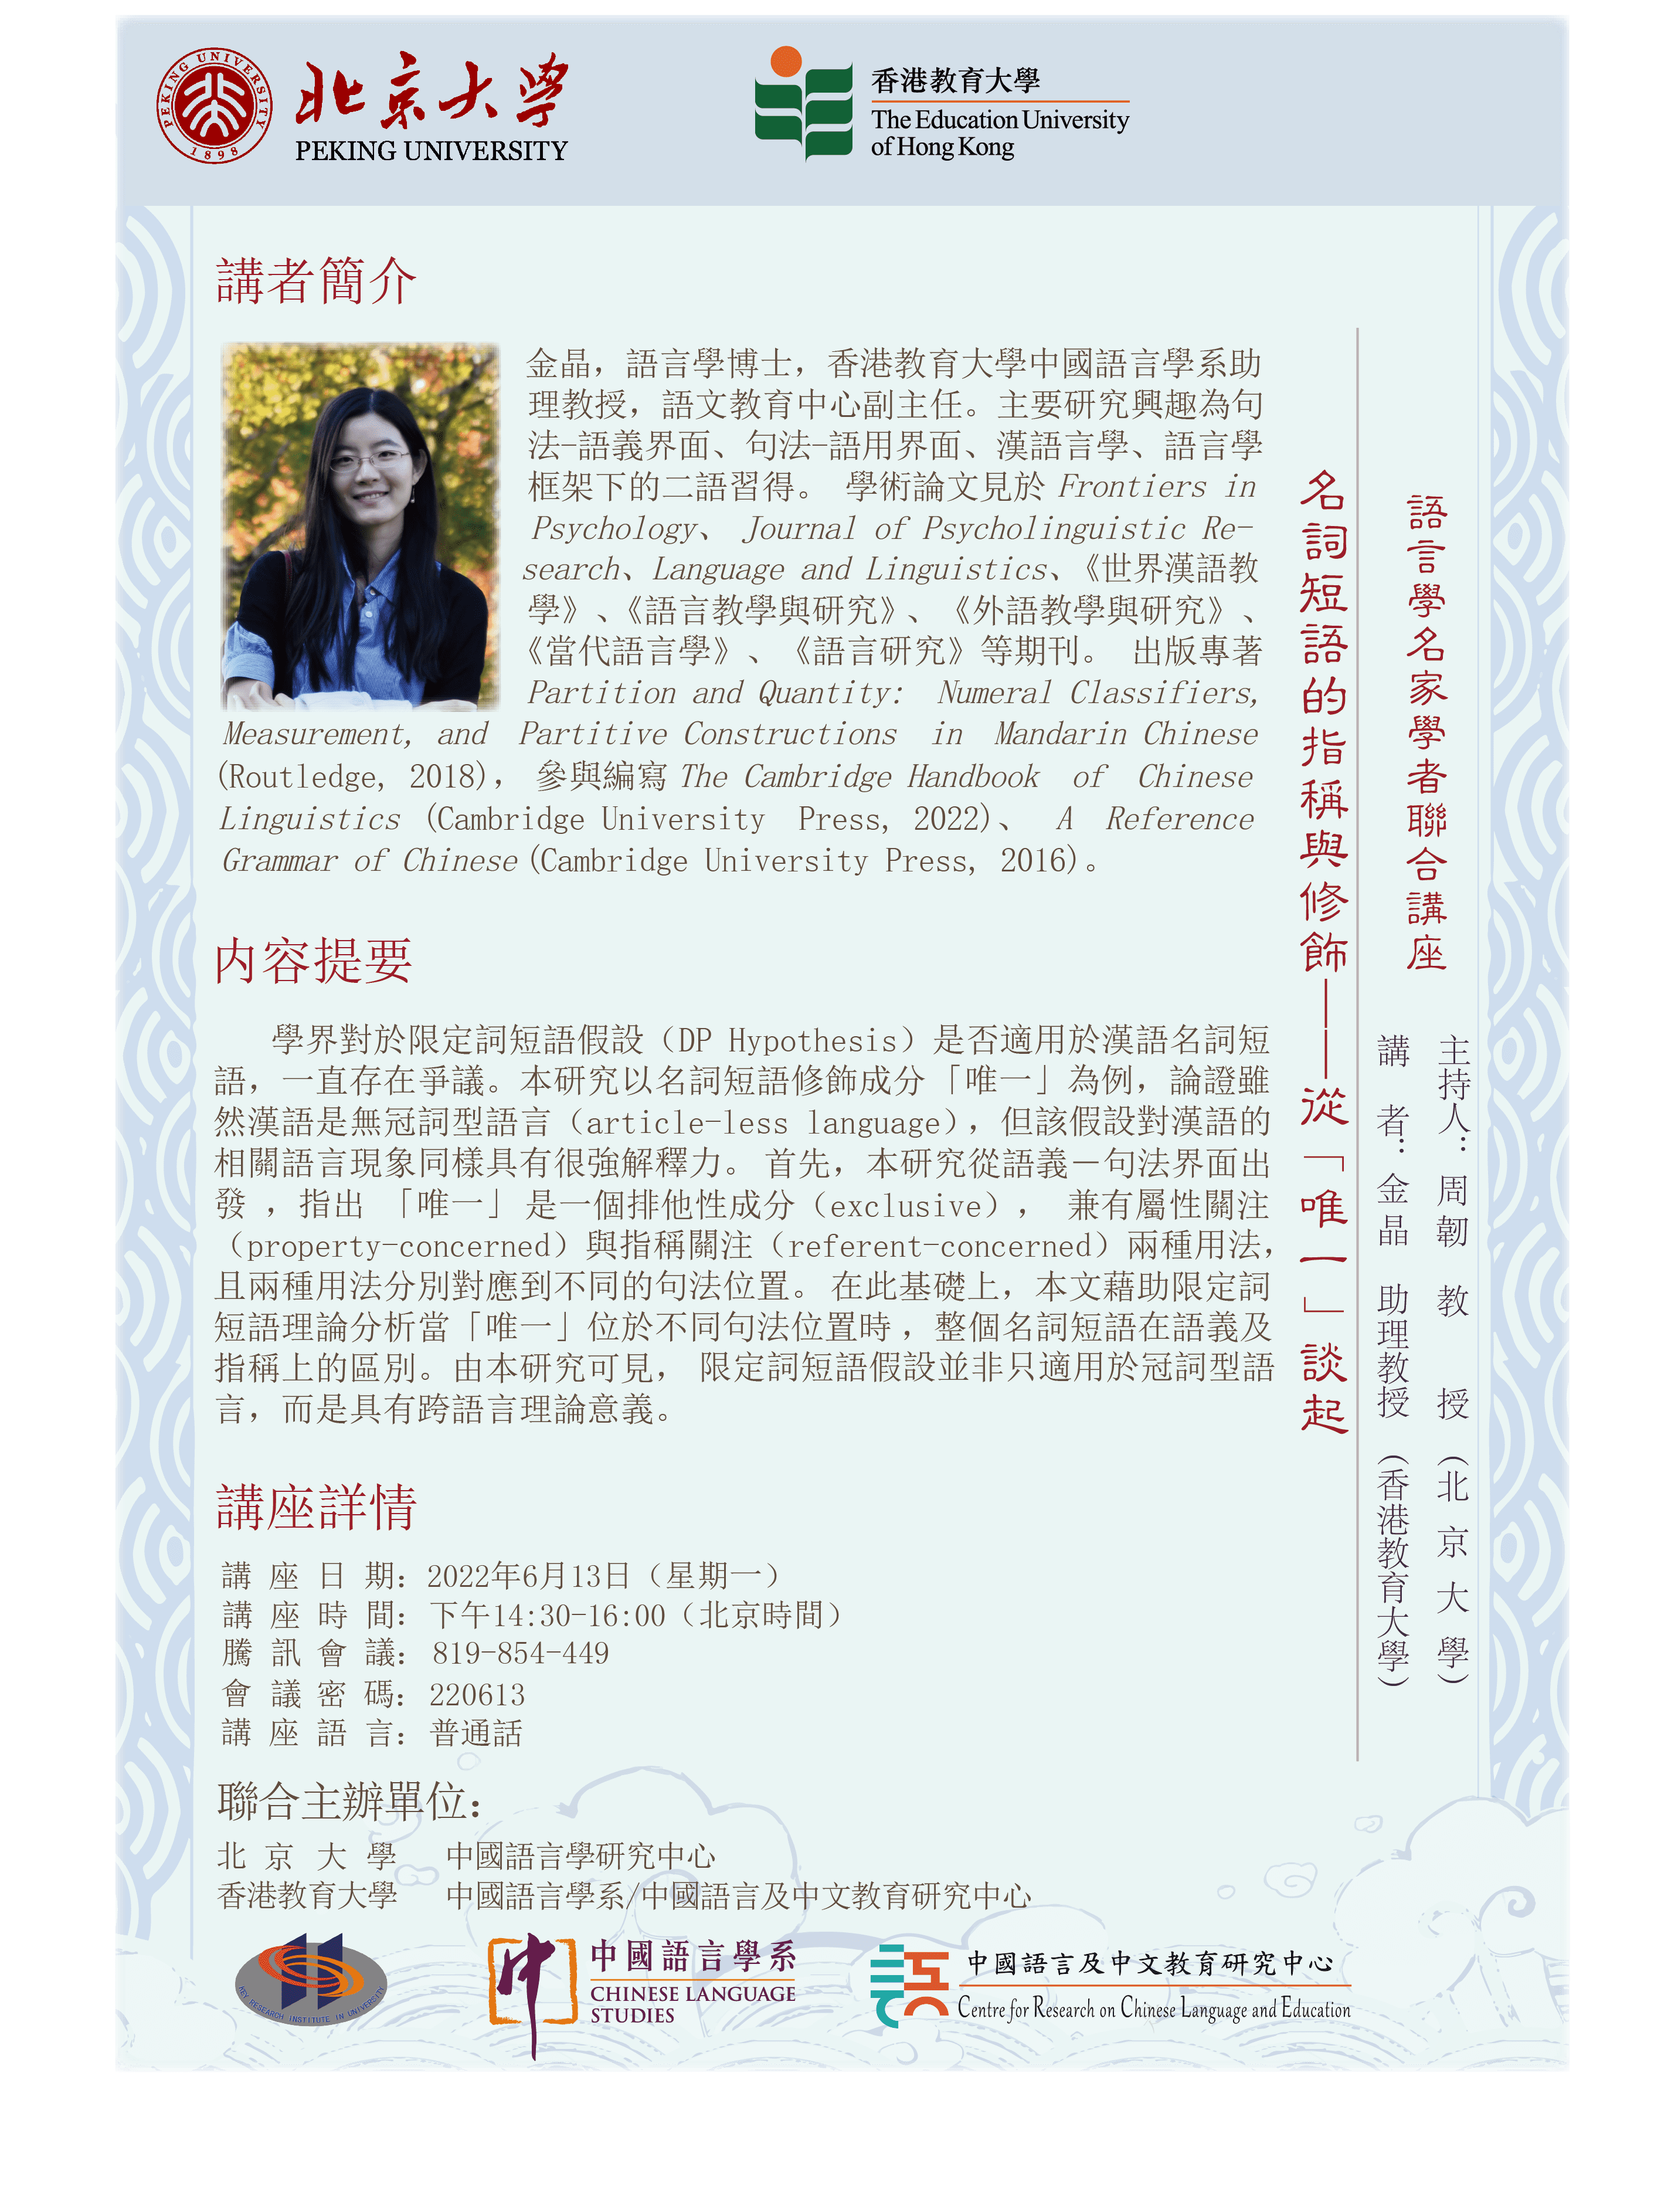 PEKING UNIVERSITY
1898
北京大学
PEKING UNIVERSITY
香港教育大學
The Education University
of Hong Kong
語言學名家學者聯合講座
主持人：周韌 教 授（北京大學）
講 者：金晶 助理教授（香港教育大學）
名詞短語的指稱與修飾——從「唯一」談起
講者簡介
金晶，語言學博士，香港教育大學中國語言學系助
理教授，語文教育中心副主任。主要研究興趣為句
法-語義界面、句法-語用界面、漢語言學、語言學
框架下的二語習得。 學術論文見於 Frontiers in
Psychology、 Journal of Psycholinguistic Re-
search、Language and Linguistics、《世界漢語教
學》、《語言教學與研究》、《外語教學與研究》、
《當代語言學》、《語言研究》等期刊。 出版專著
Partition and Quantity: Numeral Classifiers,
Measurement, and Partitive Constructions in Mandarin Chinese
(Routledge, 2018)， 參與編寫 The Cambridge Handbook of Chinese
Linguistics (Cambridge University Press, 2022)、 A Reference
Grammar of Chinese (Cambridge University Press, 2016)。
内容提要
學界對於限定詞短語假設（DP Hypothesis）是否適用於漢語名詞短
語，一直存在爭議。本研究以名詞短語修飾成分「唯一」為例，論證雖
然漢語是無冠詞型語言（article-less language），但該假設對漢語的
相關語言現象同樣具有很強解釋力。 首先，本研究從語義－句法界面出
發 ，指出 「唯一」 是一個排他性成分（exclusive）， 兼有屬性關注
（property-concerned）與指稱關注（referent-concerned）兩種用法，
且兩種用法分別對應到不同的句法位置。 在此基礎上，本文藉助限定詞
短語理論分析當「唯一」位於不同句法位置時 ，整個名詞短語在語義及
指稱上的區別。由本研究可見， 限定詞短語假設並非只適用於冠詞型語
言，而是具有跨語言理論意義。
講座詳情
講 座 日 期：2022年6月13日（星期一）
講 座 時 間：下午14:30-16:00（北京時間）
騰 訊 會 議：819-854-449
會 議 密 碼：220613
講 座 語 言：普通話
聯合主辦單位：
北 京 大 學 中國語言學研究中心
香港教育大學 中國語言學系/中國語言及中文教育研究中心
KEY RESEARCH INSTITUTE IN UNIVERSITY
中
中國語言學系
CHINESE LANGUAGE
STUDIES
中國語言及中文教育研究中心
Centre for Research on Chinese Language and Education